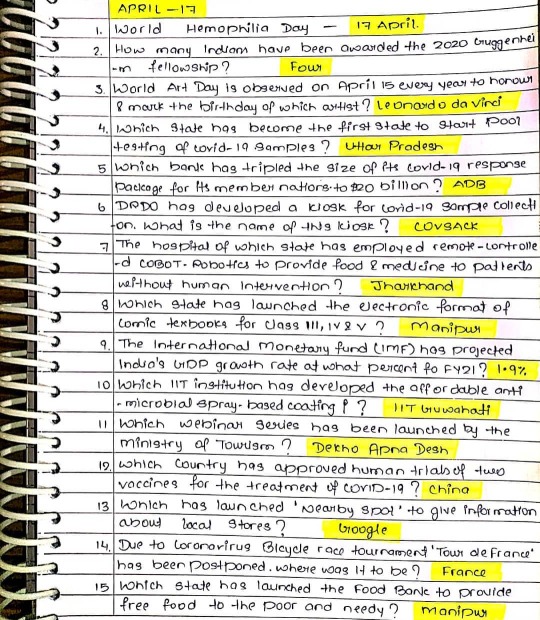 APRIL - 17
1. World Hemophilia Day - 17 April.
2. How many Indians have been awarded the 2020 Guggenhei
-m fellowship? Four
3. World Art Day is observed on April 15 every year to honour
& mark the birthday of which artist? Leonardo da Vinci
4. Which State has become the first State to start Pool
testing of covid-19 Samples? Uttar Pradesh
5 Which bank has tripled the size of its covid-19 response
package for its member nations to $20 billion? ADB
6 DRDO has developed a kiosk for covid-19 Sample collecti
-on. What is the name of this kiosk? COVSACK
7 The hospital of which state has employed remote-controlle
-d COBOT-Robotics to provide food & medicine to patients
without human intervention? Jharkhand
8 Which State has launched the electronic format of
Comic texbooks for Class III, IV & V? Manipur
9. The International Monetary fund (IMF) has projected
India's GDP growth rate at what percent fo FY21? 1.9%
10 Which IIT institution has developed the affordable anti
-microbial spray-based coating? IIT Guwahati
11 Which webinar series has been launched by the
ministry of Tourism? Dekho Apna Desh
12. Which country has approved human trials of two
vaccines for the treatment of COVID-19? China
13 Which has launched 'Nearby Spot' to give information
about local Stores? Google
14. Due to Coronavirus Bicycle race tournament 'Tour de France'
has been postponed. where was it to be? France
15 Which State has launched the Food Bank to provide
free food to the poor and needy? Manipur